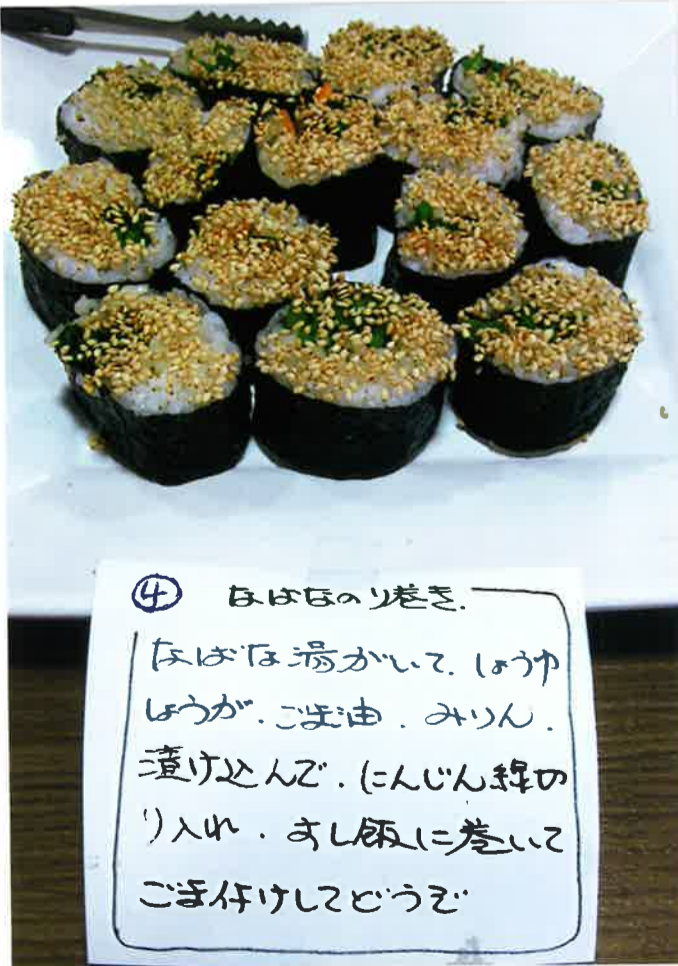 ④ なばなのり巻き.
なばな湯がいて. しょうゆ
しょうが. ごま油. みりん.
漬け込んで. にんじん線切
り入れ. すし飯に巻いて
ごま付けしてどうぞ